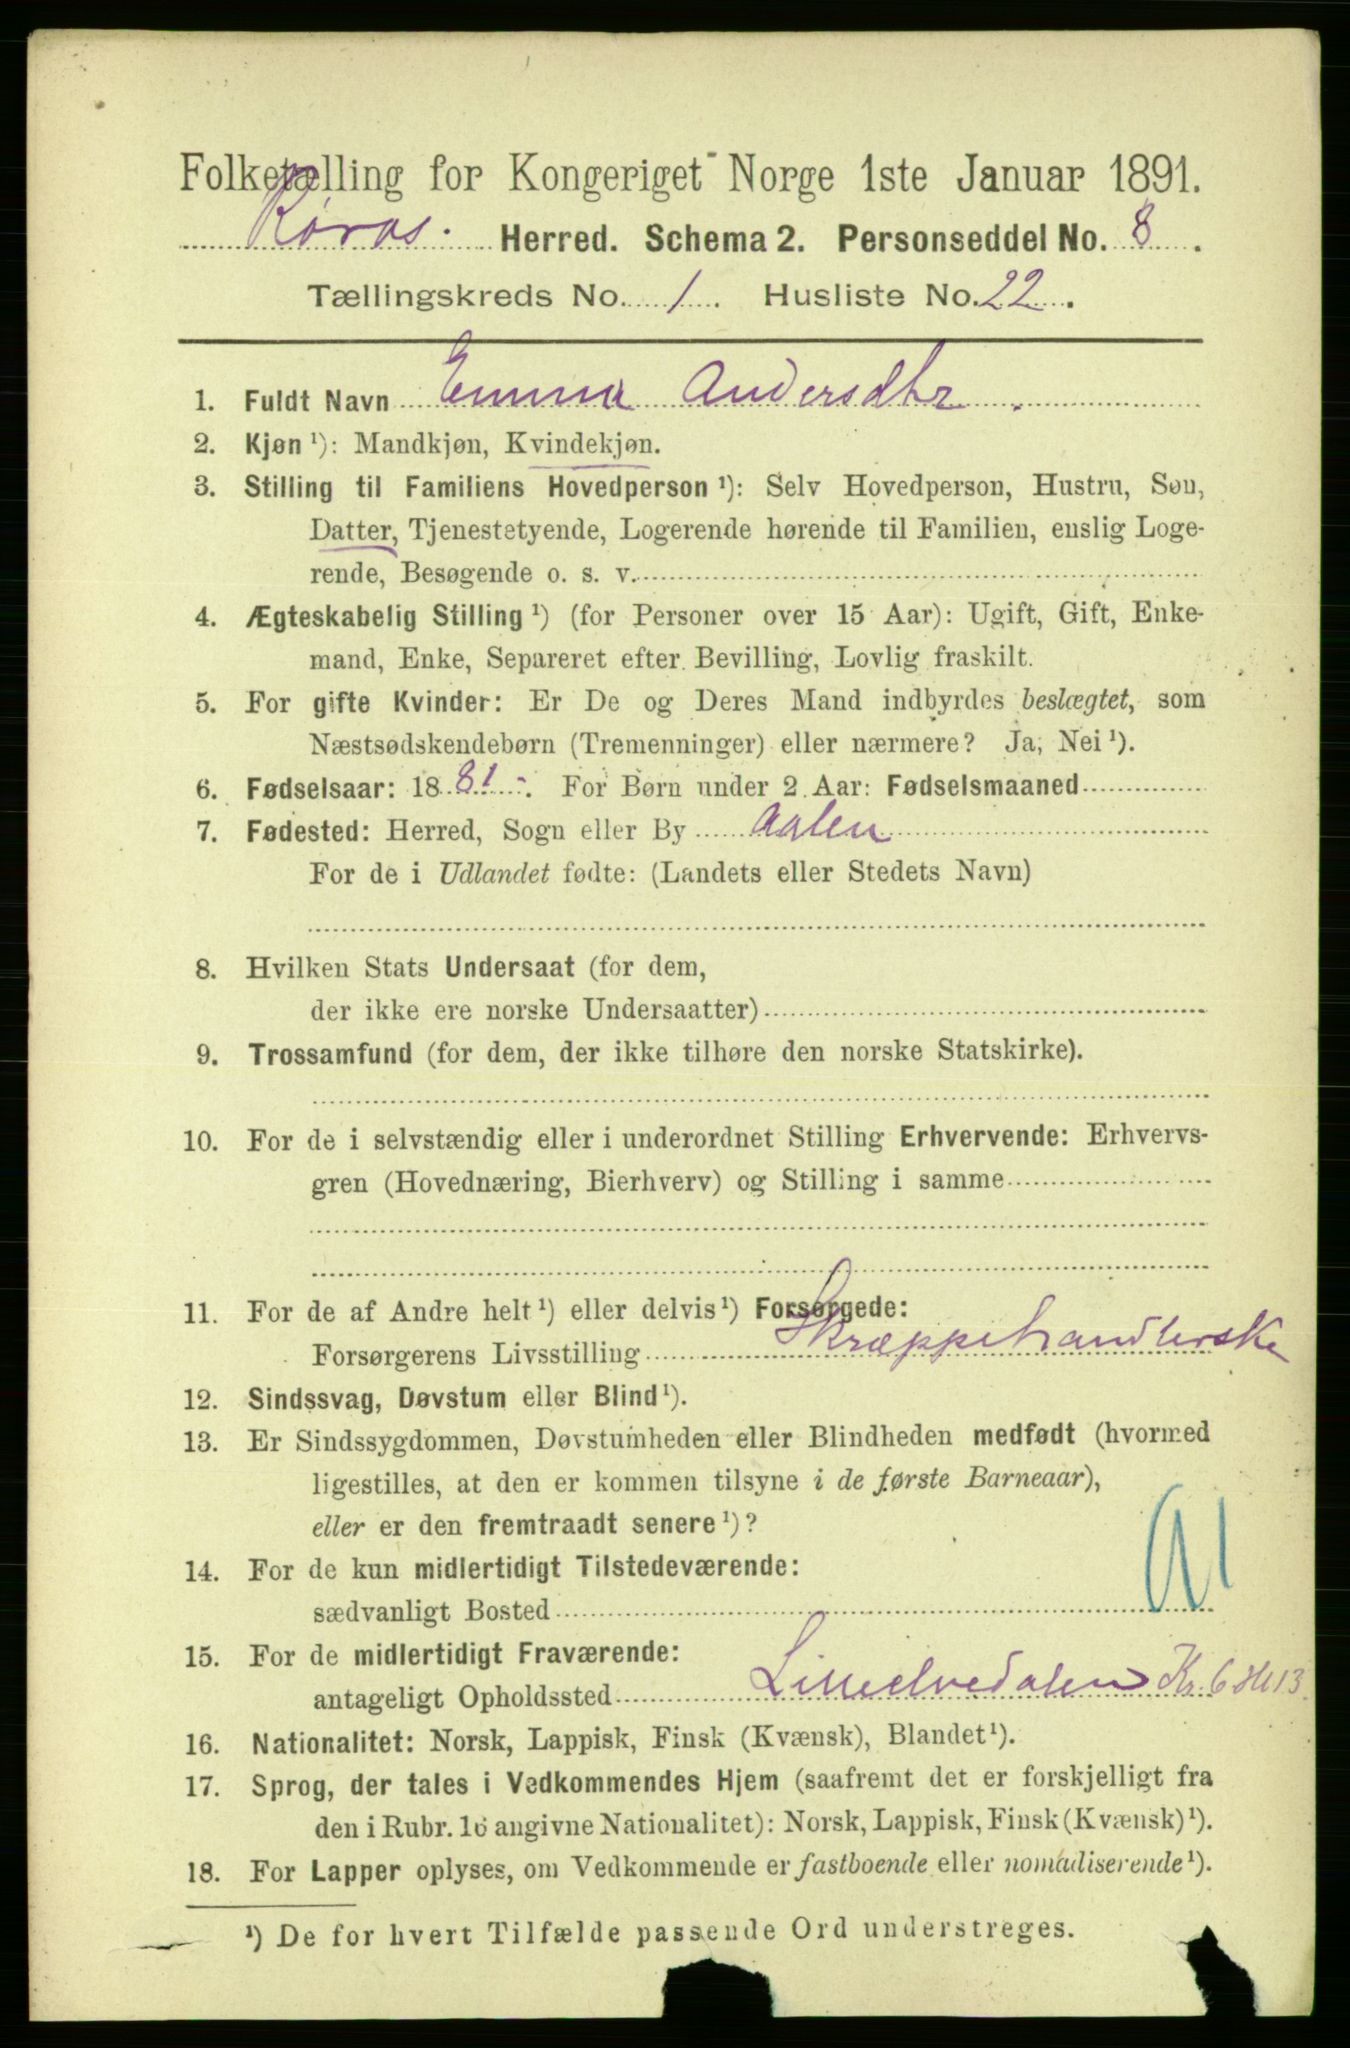 Folketælling for Kongeriget Norge 1ste Januar 1891.
Røros. Herred. Schema 2. Personseddel No. 8.
Tællingskreds No. 1. Husliste No. 22.
1. Fuldt Navn Emma Andersdtr.
2. Kjøn ¹): Mandkjøn, Kvindekjøn.
3. Stilling til Familiens Hovedperson ¹): Selv Hovedperson, Hustru, Søn,
Datter, Tjenestetyende, Logerende hørende til Familien, enslig Loge-
rende, Besøgende o. s. v.
4. Ægteskabelig Stilling ¹) (for Personer over 15 Aar): Ugift, Gift, Enke-
mand, Enke, Separeret efter Bevilling, Lovlig fraskilt.
5. For gifte Kvinder: Er De og Deres Mand indbyrdes beslægtet, som
Næstsødskendebørn (Tremenninger) eller nærmere? Ja, Nei ¹).
6. Fødselsaar: 1881. For Børn under 2 Aar: Fødselsmaaned
7. Fødested: Herred, Sogn eller By Aalen
For de i Udlandet fødte: (Landets eller Stedets Navn)
8. Hvilken Stats Undersaat (for dem,
der ikke ere norske Undersaatter)
9. Trossamfund (for dem, der ikke tilhøre den norske Statskirke).
10. For de i selvstændig eller i underordnet Stilling Erhvervende: Erhvervs-
gren (Hovednæring, Bierhverv) og Stilling i samme
11. For de af Andre helt ¹) eller delvis ¹) Forsørgede:
Forsørgerens Livsstilling Skræppehandlerske
12. Sindssvag, Døvstum eller Blind ¹).
13. Er Sindssygdommen, Døvstumheden eller Blindheden medfødt (hvormed
ligestilles, at den er kommen tilsyne i de første Barneaar),
eller er den fremtraadt senere ¹)?
14. For de kun midlertidigt Tilstedeværende:
sædvanligt Bosted
15. For de midlertidigt Fraværende:
antageligt Opholdssted Lilleelvedalen Kr. 6 Hl 13.
16. Nationalitet: Norsk, Lappisk, Finsk (Kvænsk), Blandet ¹).
17. Sprog, der tales i Vedkommendes Hjem (saafremt det er forskjelligt fra
den i Rubr. 16 angivne Nationalitet): Norsk, Lappisk, Finsk (Kvænsk) ¹).
18. For Lapper oplyses, om Vedkommende er fastboende eller nomadiserende ¹).
¹) De for hvert Tilfælde passende Ord understreges.